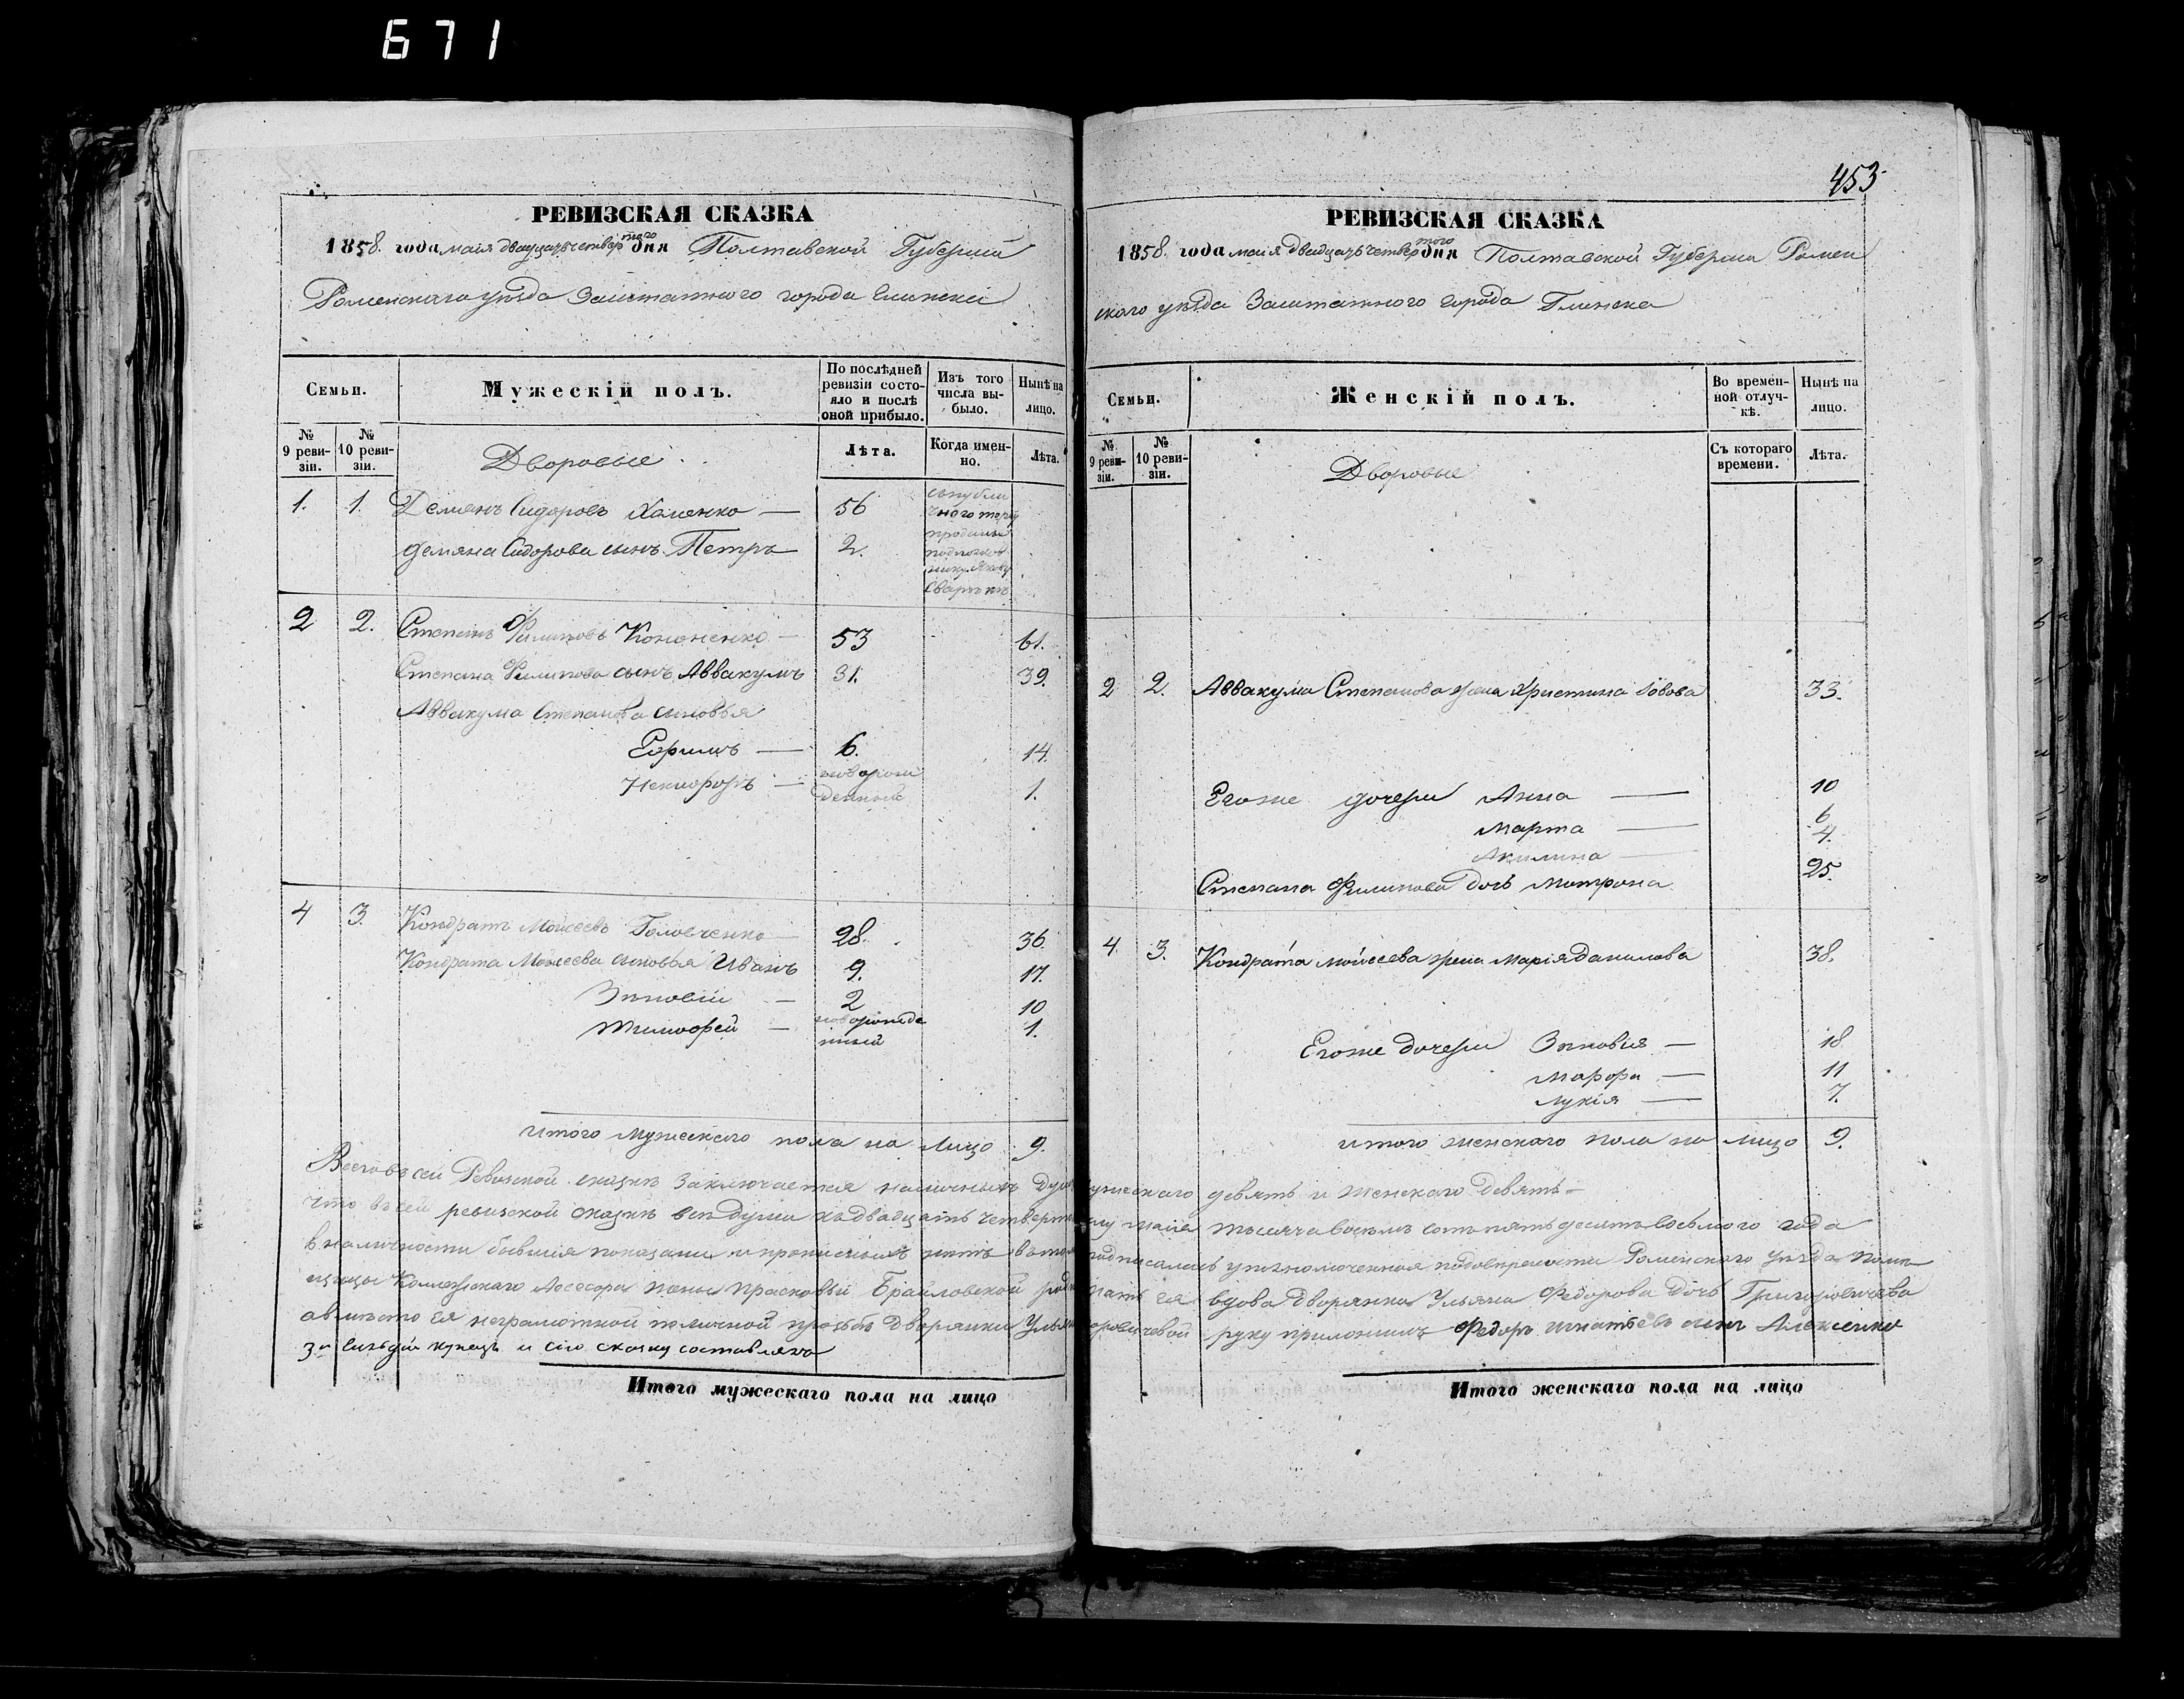 671
453
РЕВИЗСКАЯ СКАЗКА
1858. года маія двадцать четвертого дня Полтавской Губерніи
Роменскаго уѣзда Заштатного города Глинска
Семьи.
Мужескій полъ.
По послѣдней ревизіи состояло и послѣ оной прибыло.
Изъ того числа выбыло.
Нынѣ на лицо.
№ 9 ревизіи.
№ 10 ревизіи.
Дворовые
Лѣта.
Когда именно.
Лѣта.
1. 1. Демянъ Сидоровъ Хоменко — 56
Демяна Сидорова сынъ Петръ 2.
спубли
чного торгу
проданы
2 2. Степанъ Филиповъ Кононенко — 53 61.
Степана Филипова сынъ Аввакумъ 31. 39.
Аввакума Степанова сыновья
Ефимъ — 6. 14.
Никифоръ — новорож
денный 1.
4 3. Кондратъ Моисеевъ Головченко — 28. 36.
Кондрата Моисеева сыновья Иванъ 9. 17.
Зиновій — 2 10
Тимофей — новорожде
нный 1.
итого мужескаго пола на лицо 9.
РЕВИЗСКАЯ СКАЗКА
1858. года маія двадцать четвертого дня Полтавской Губерніи Ромен
ского уѣзда Заштатного города Глинска
Семьи.
Женскій полъ.
Во временной отлучкѣ.
Нынѣ на лицо.
№ 9 ревизіи.
№ 10 ревизіи.
Дворовые
Съ котораго времени.
Лѣта.
2 2. Аввакума Степанова жена Христина 33.
Егоже дочери Анна — 10
Марта — 6
Акилина — 4.
Степана Филипова дочь Матрона 25.
4. 3. Кондрата Моисеева жена Марія Данилова 38.
Егоже дочери Зиновія — 18
Марфа — 11
Лукія — 7.
итого женскаго пола на лицо 9.
Всего въ сей Ревизской сказкѣ заключается наличныхъ душъ мужескаго девять и женскаго девять —
что въ сей ревизской сказкѣ всѣ души къ двадцать четвертому маія тысяча восемь сотъ пятьдесятъ восьмого года
в наличности бывшія показаны и прописныхъ нѣтъ в томъ подписалась уполномоченная по доверенности Роменского уѣзда помѣ
щицы Коллежскаго Асесора жены Прасковьи Брайловской мать ея вдова Дворянка Ульяна Федорова дочь Григоровичева
а вместо ея неграмотной по личной прозьбѣ дворянки Ульяны Григоровичевой руку приложилъ Федоръ Игнатьевъ сынъ Алексенко
3й Гильдіи купецъ и сію сказку составлялъ
Итого мужескаго пола на лицо
Итого женскаго пола на лицо